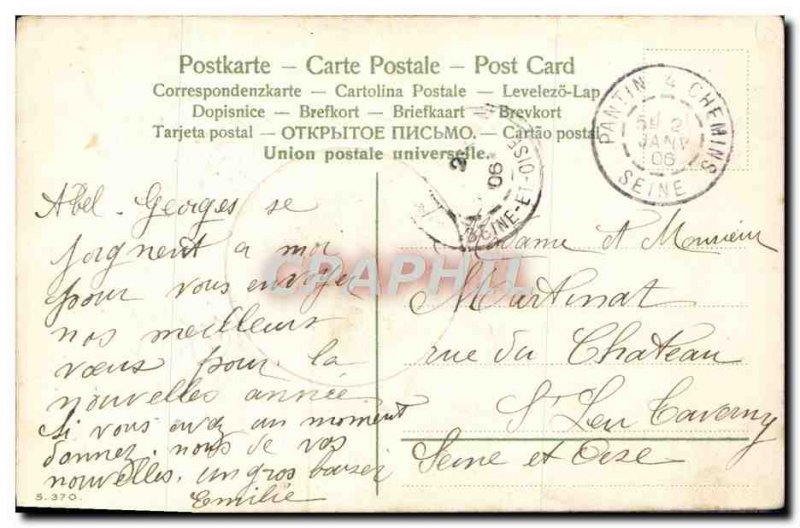 Postkarte – Carte Postale – Post Card
Correspondenzkarte – Cartolina Postale – Levelező-Lap
Dopisnice – Brefkort – Briefkaart – Brevkort
Tarjeta postal – ОТКРЫТОЕ ПИСЬМО. – Cartão postal
Union postale universelle.
PANTIN 4 CHEMINS
2
JANV
06
SEINE
06
SEINE-ET-OISE
Abel. Georges se
joignent a moi
pour vous envoyer
nos meilleurs
vœux pour la
nouvelles année
Si vous avez un moment
donnez. nous de vos
nouvelles, un gros baiser
Emilie
S. 370.
Madame et Monsieur
Martinat
rue du Chateau
St Leu Taverny
Seine et Oise
CPAPHIL